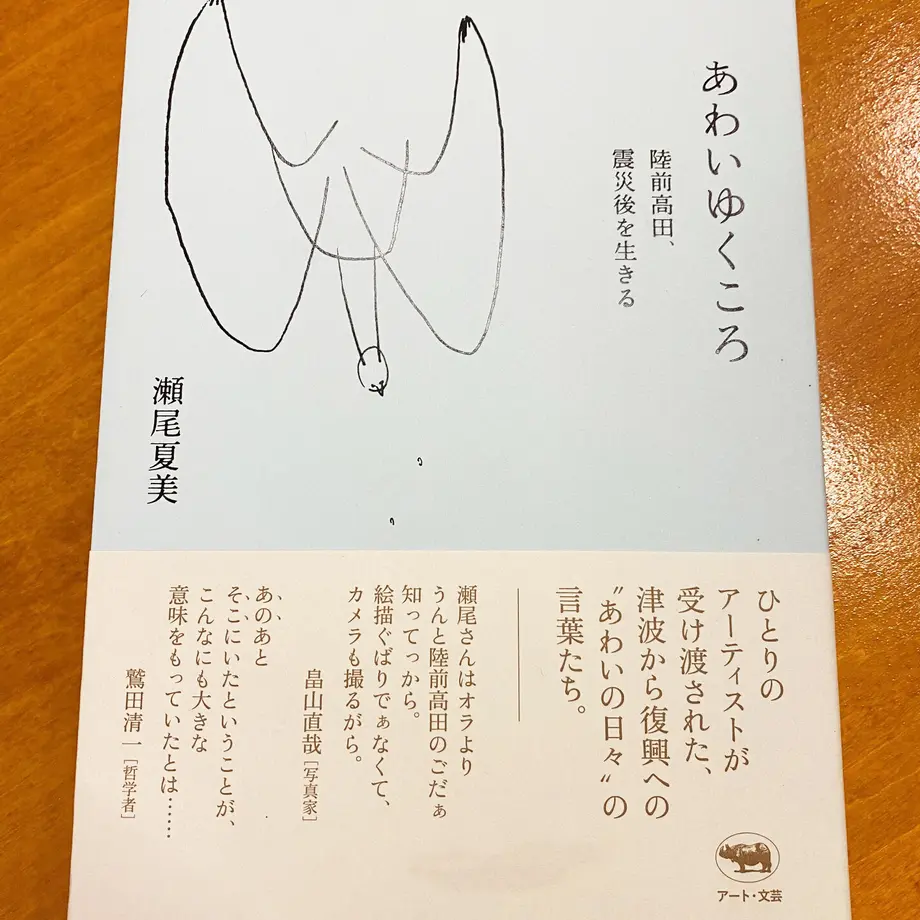 あわいゆくころ
陸前高田、
震災後を生きる
瀬尾夏美
ひとりの
アーティストが
受け渡された、
津波から復興への
〝あわいの日々〟の
言葉たち。
瀬尾さんはオラより
うんと陸前高田のごだぁ
知ってっから。
絵描ぐばりでぁなくて、
カメラも撮るがら。
畠山直哉［写真家］
あのあと
そこにいたということが、
こんなにも大きな
意味をもっていたとは……
鷲田清一［哲学者］
アート・文芸